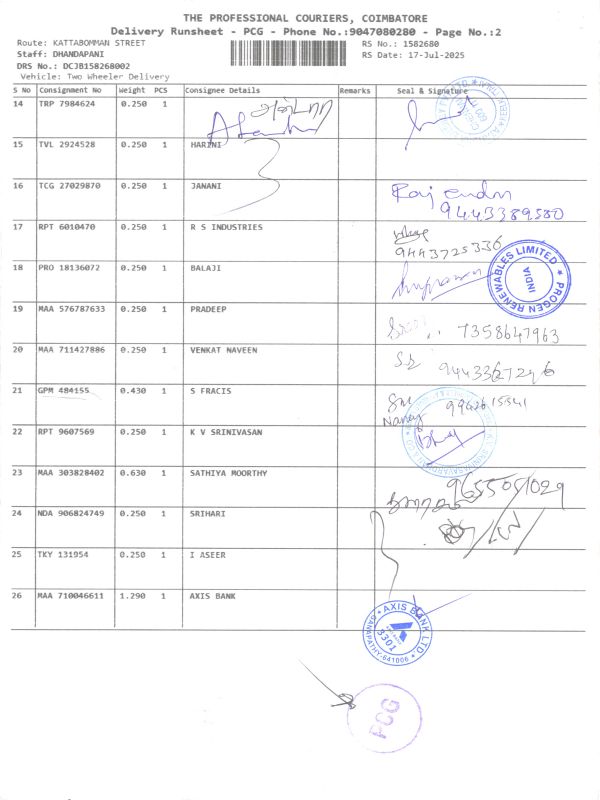 THE PROFESSIONAL COURIERS, COIMBATORE
Delivery Runsheet - PCG - Phone No.:9047080280 - Page No.:2
Route: KATTABOMMAN STREET
Staff: DHANDAPANI
DRS No.: DCJB158268002
Vehicle: Two Wheeler Delivery
RS No.: 1582680
RS Date: 17-Jul-2025
S No Consignment No Weight PCS Consignee Details Remarks Seal & Signature
14 TRP 7984624 0.250 1
15 TVL 2924528 0.250 1 HARINI
16 TCG 27029870 0.250 1 JANANI
Rajendra
9443389580
17 RPT 6010470 0.250 1 R S INDUSTRIES
9443725336
18 PRO 18136072 0.250 1 BALAJI
PROGEN RENEWABLES LIMITED
INDIA
19 MAA 576787633 0.250 1 PRADEEP
7358647963
20 MAA 711427886 0.250 1 VENKAT NAVEEN
21 GPM 484155 0.430 1 S FRACIS
22 RPT 9607569 0.250 1 K V SRINIVASAN
23 MAA 303828402 0.630 1 SATHIYA MOORTHY
9655051029
24 NDA 906824749 0.250 1 SRIHARI
25 TKY 131954 0.250 1 I ASEER
26 MAA 710046611 1.290 1 AXIS BANK
AXIS BANK LTD.
3301
GANAPATHY-641006
PCG